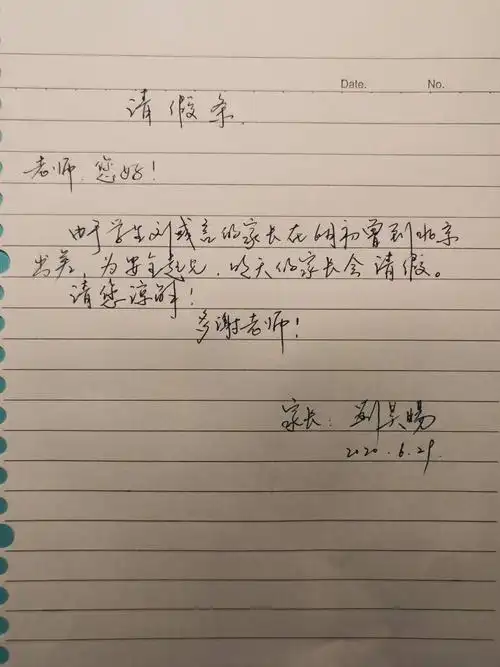 Date.
No.
请假条
老师，您好！
由于学生刘或言的家长在6月初曾到北京
出差，为安全起见，明天的家长会请假。
请您谅解！
多谢老师！
家长：刘昊暘
2020.6.29.